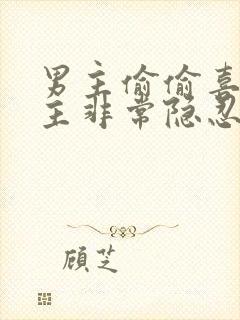 男主偷偷喜
主非常隐忍
顾芝